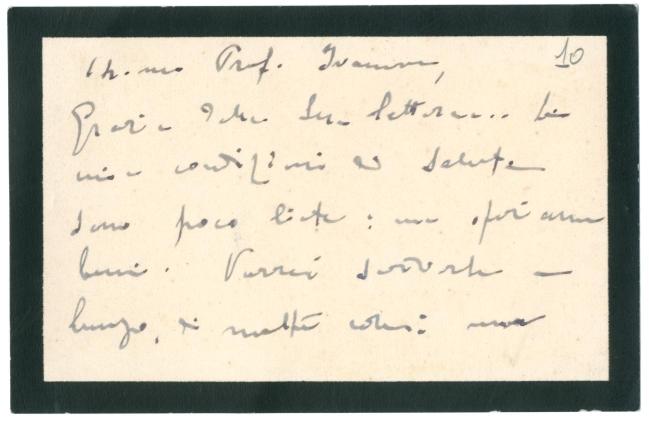 Ch.mo Prof. 10
Grazie della Sua lettera... Le
mie condizioni di salute
sono poco liete: ma speriamo
bene. Vorrei scriverle a
lungo, di molte cose: ma